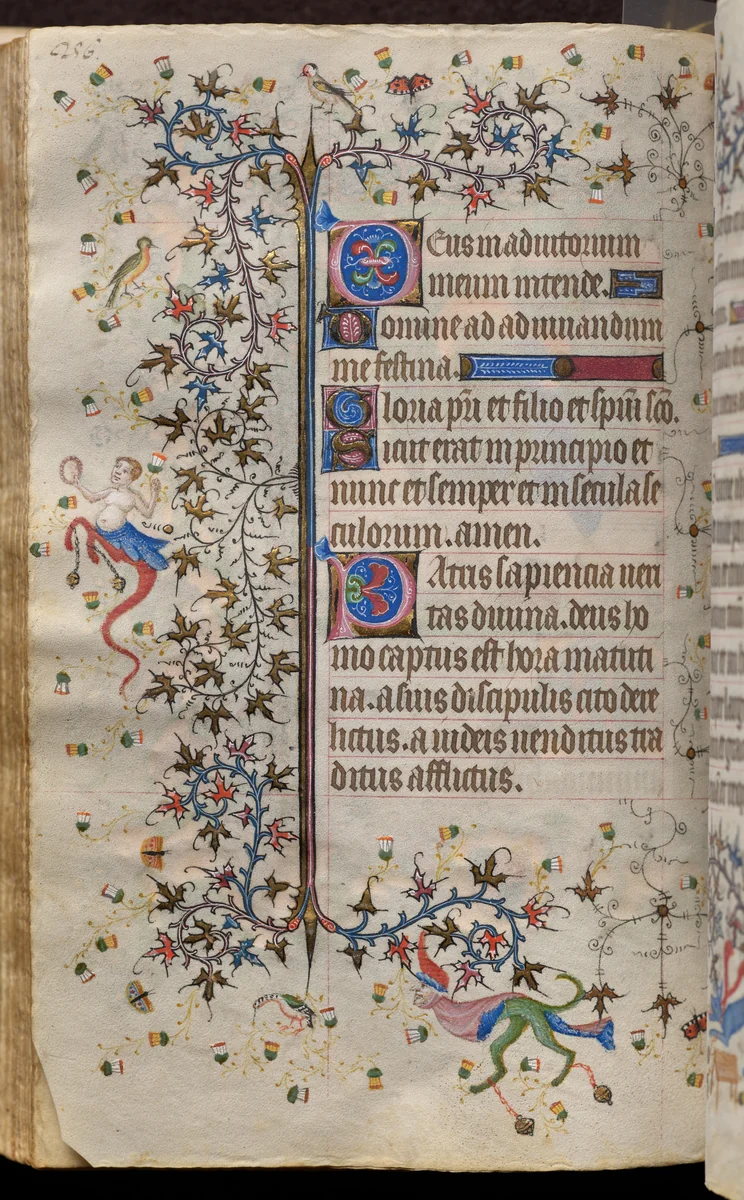 286.
Deus in adiutorium
meum intende.
Domine ad adiuuandum
me festina.
Gloria pri et filio et spiui sco.
Sicut erat in principio et
nunc et semper et in secula se
culorum. amen.
Patris sapiencia ueri
tas diuina. deus ho
mo captus est hora matuti
na. a suis discipulis cito dere
lictus. a iudeis uenditus tra
ditus afflictus.